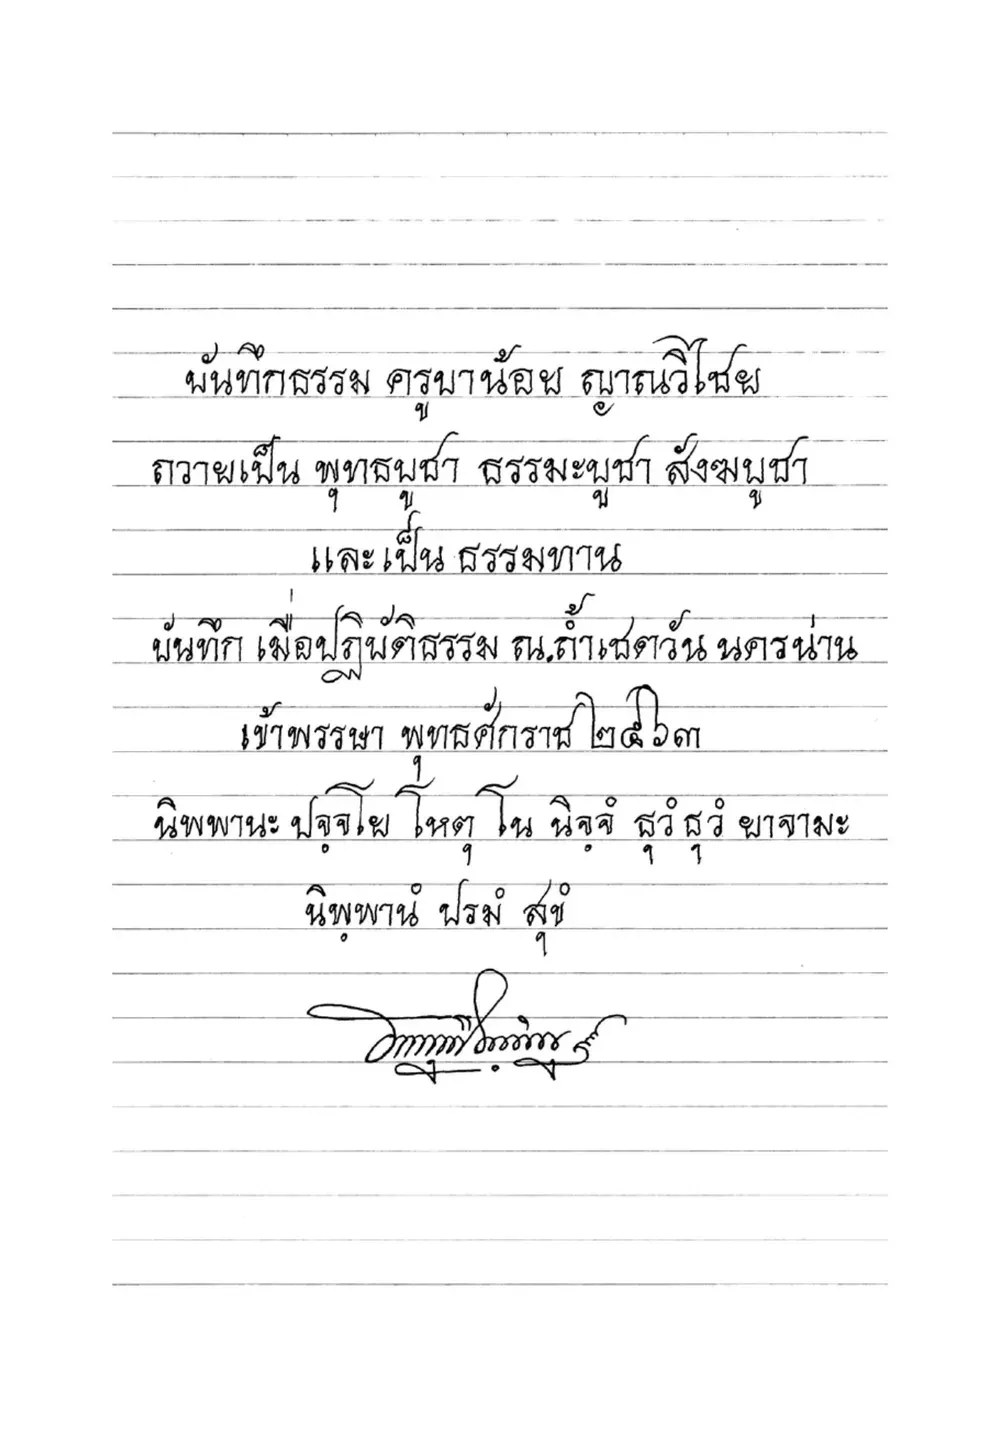 บันทึกธรรม ครูบาน้อย ญาณวิไชย
ถวายเป็น พุทธบูชา ธรรมะบูชา สังฆบูชา
และเป็น ธรรมทาน
บันทึก เมื่อปฏิบัติธรรม ณ.ถ้ำเชตวัน นครน่าน
เข้าพรรษา พุทธศักราช ๒๕๖๓
นิพพานะ ปจฺจโย โหตุ โน นิจฺจํ ธุวํ ธุวํ ยาจามะ
นิพฺพานํ ปรมํ สุขํ